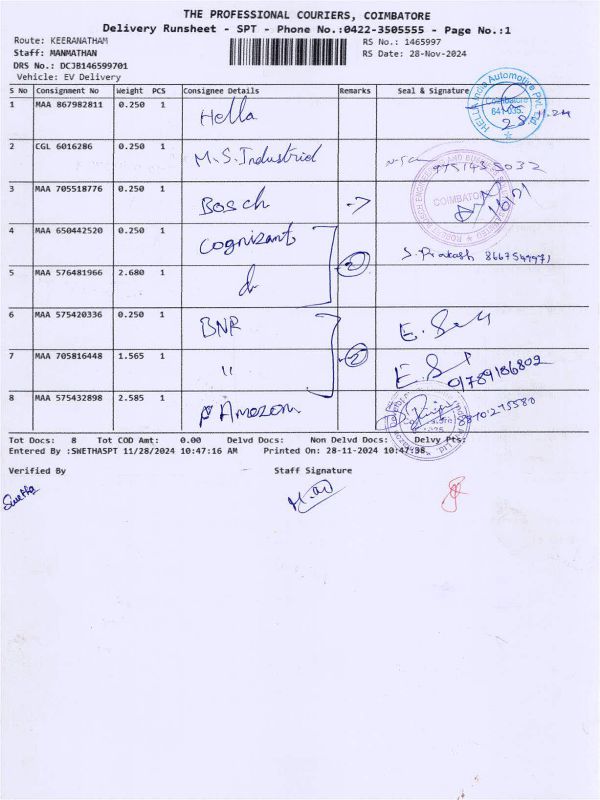 THE PROFESSIONAL COURIERS, COIMBATORE
Delivery Runsheet - SPT - Phone No.:0422-3505555 - Page No.:1
Route: KEERANATHAM RS No.: 1465997
Staff: MANMATHAN RS Date: 28-Nov-2024
DRS No.: DCJB146599701
Vehicle: EV Delivery
S No Consignment No Weight PCS Consignee Details Remarks Seal & Signature
1 MAA 867982811 0.250 1 Hella
HELLA India Automotive Pvt. Ltd.
Coimbatore
641 035.
28.11.24
2 CGL 6016286 0.250 1 M.S.Industrial
3 MAA 705518776 0.250 1 Bosch
COIMBATORE
4 MAA 650442520 0.250 1 Cognizant 2 S. Prakash
5 MAA 576481966 2.680 1 do
6 MAA 575420336 0.250 1 BNR
7 MAA 705816448 1.565 1 11 2 01789186802
8 MAA 575432898 2.585 1 Amazon
Tot Docs: 8 Tot COD Amt: 0.00 Delvd Docs: Non Delvd Docs: Delvy Pts:
Entered By :SWETHASPT 11/28/2024 10:47:16 AM Printed On: 28-11-2024 10:47:38
Verified By Staff Signature
Swetha